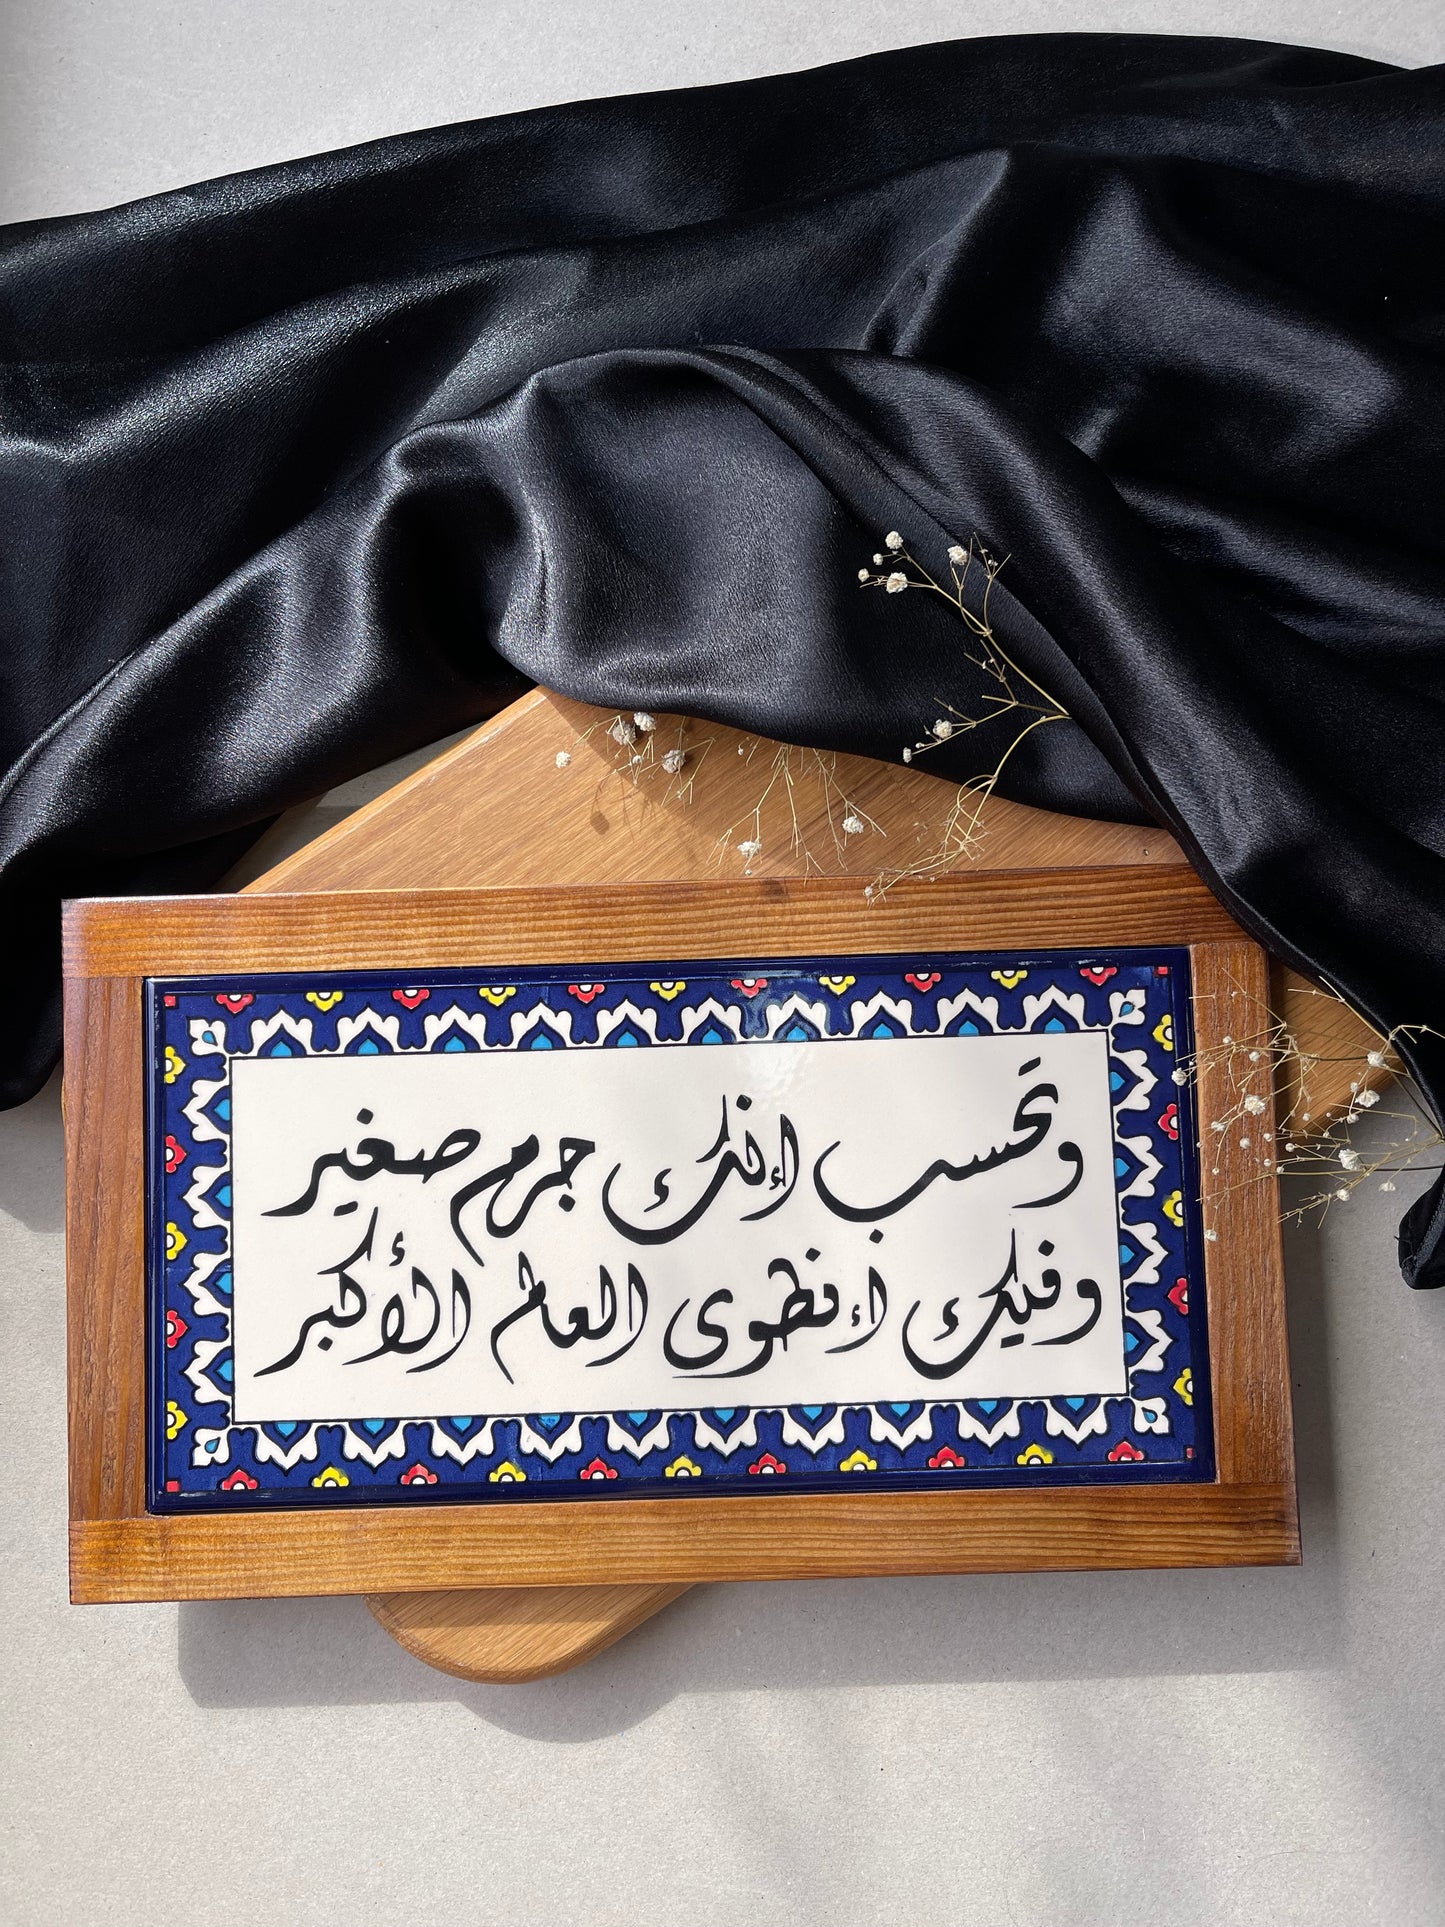 وتَحسب إنك جرم صغير
وفيك إنطوى العالم الأكبر